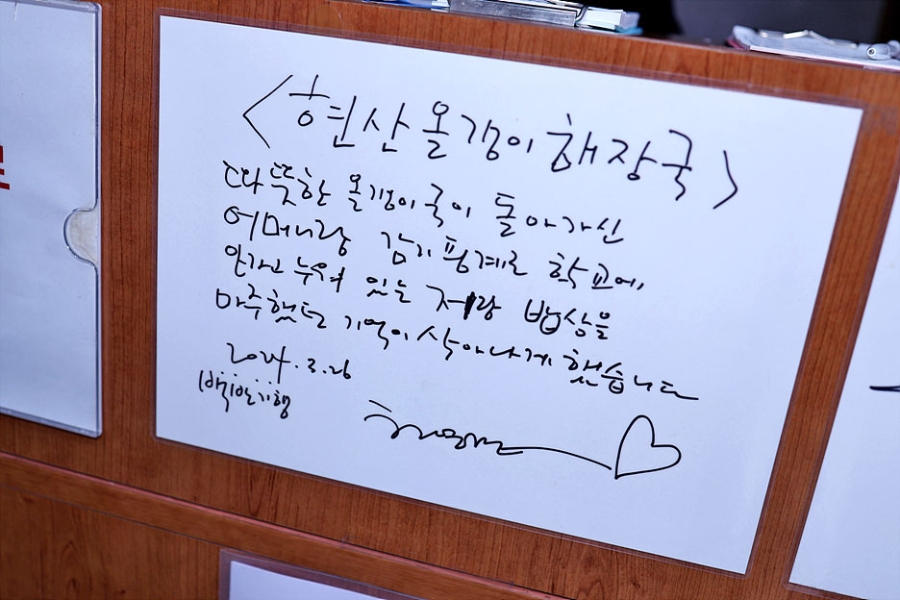 <흰산올갱이해장국>
따뜻한 올갱이국이 돌아가신
어머니랑 감기 핑계로 학교에
안가고 누워 있는 저랑 밥상을
마주했던 기억이 살아나게 했습니다
2024.3.26
백반기행